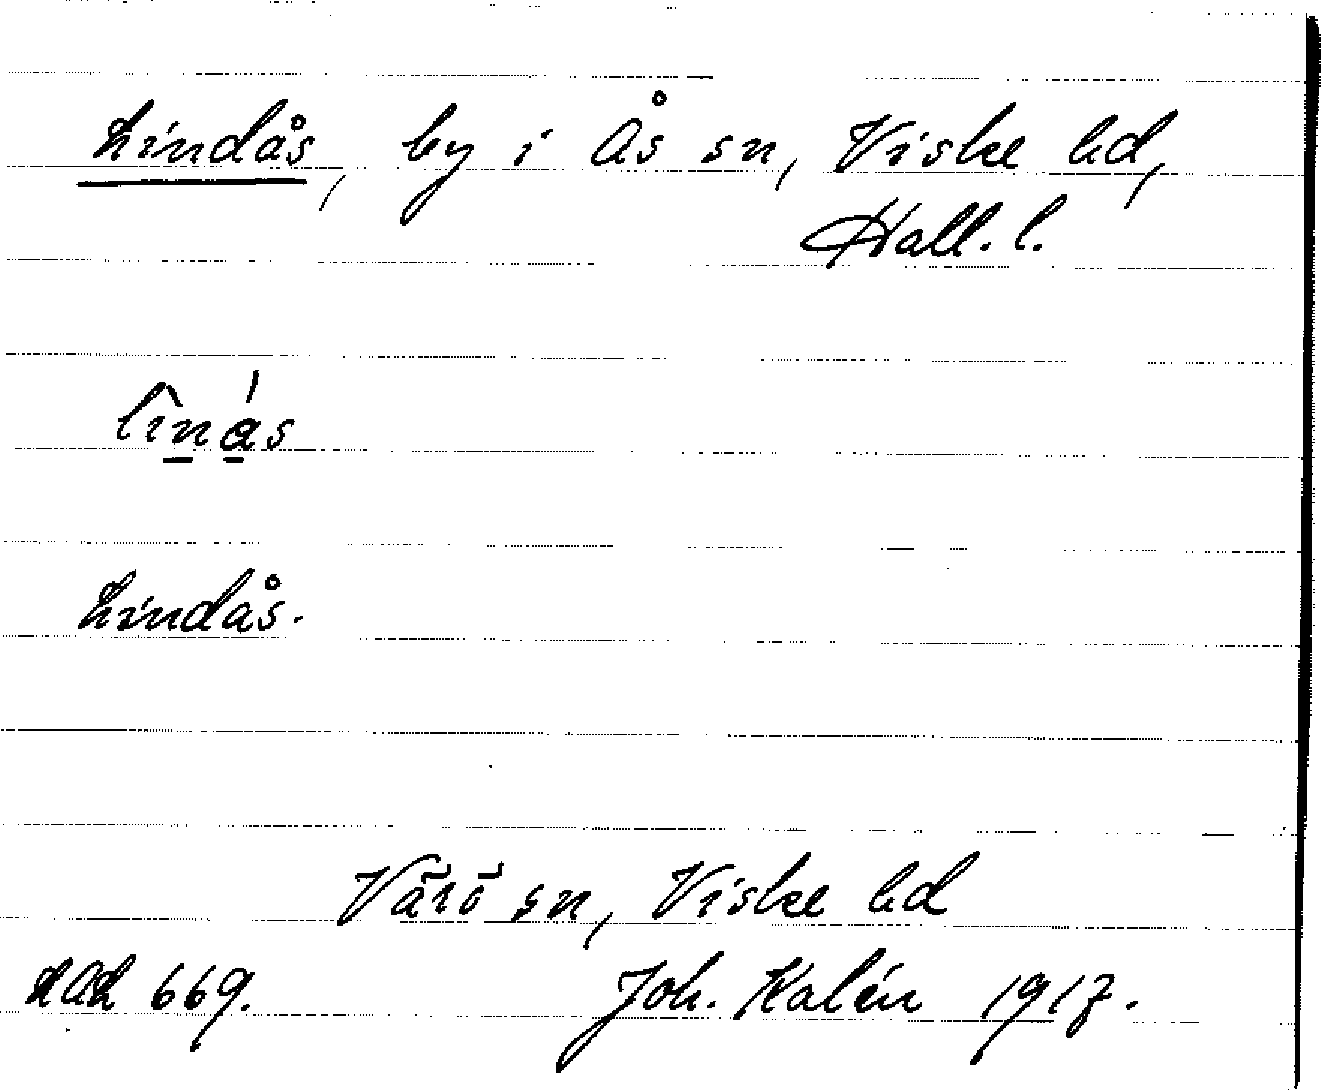 Lindås, by i Ås sn, Viske hd,
Hall. l.
lînás
Lindås.
Värö sn, Viske hd
LAL 669. Joh. Kalén 1917.